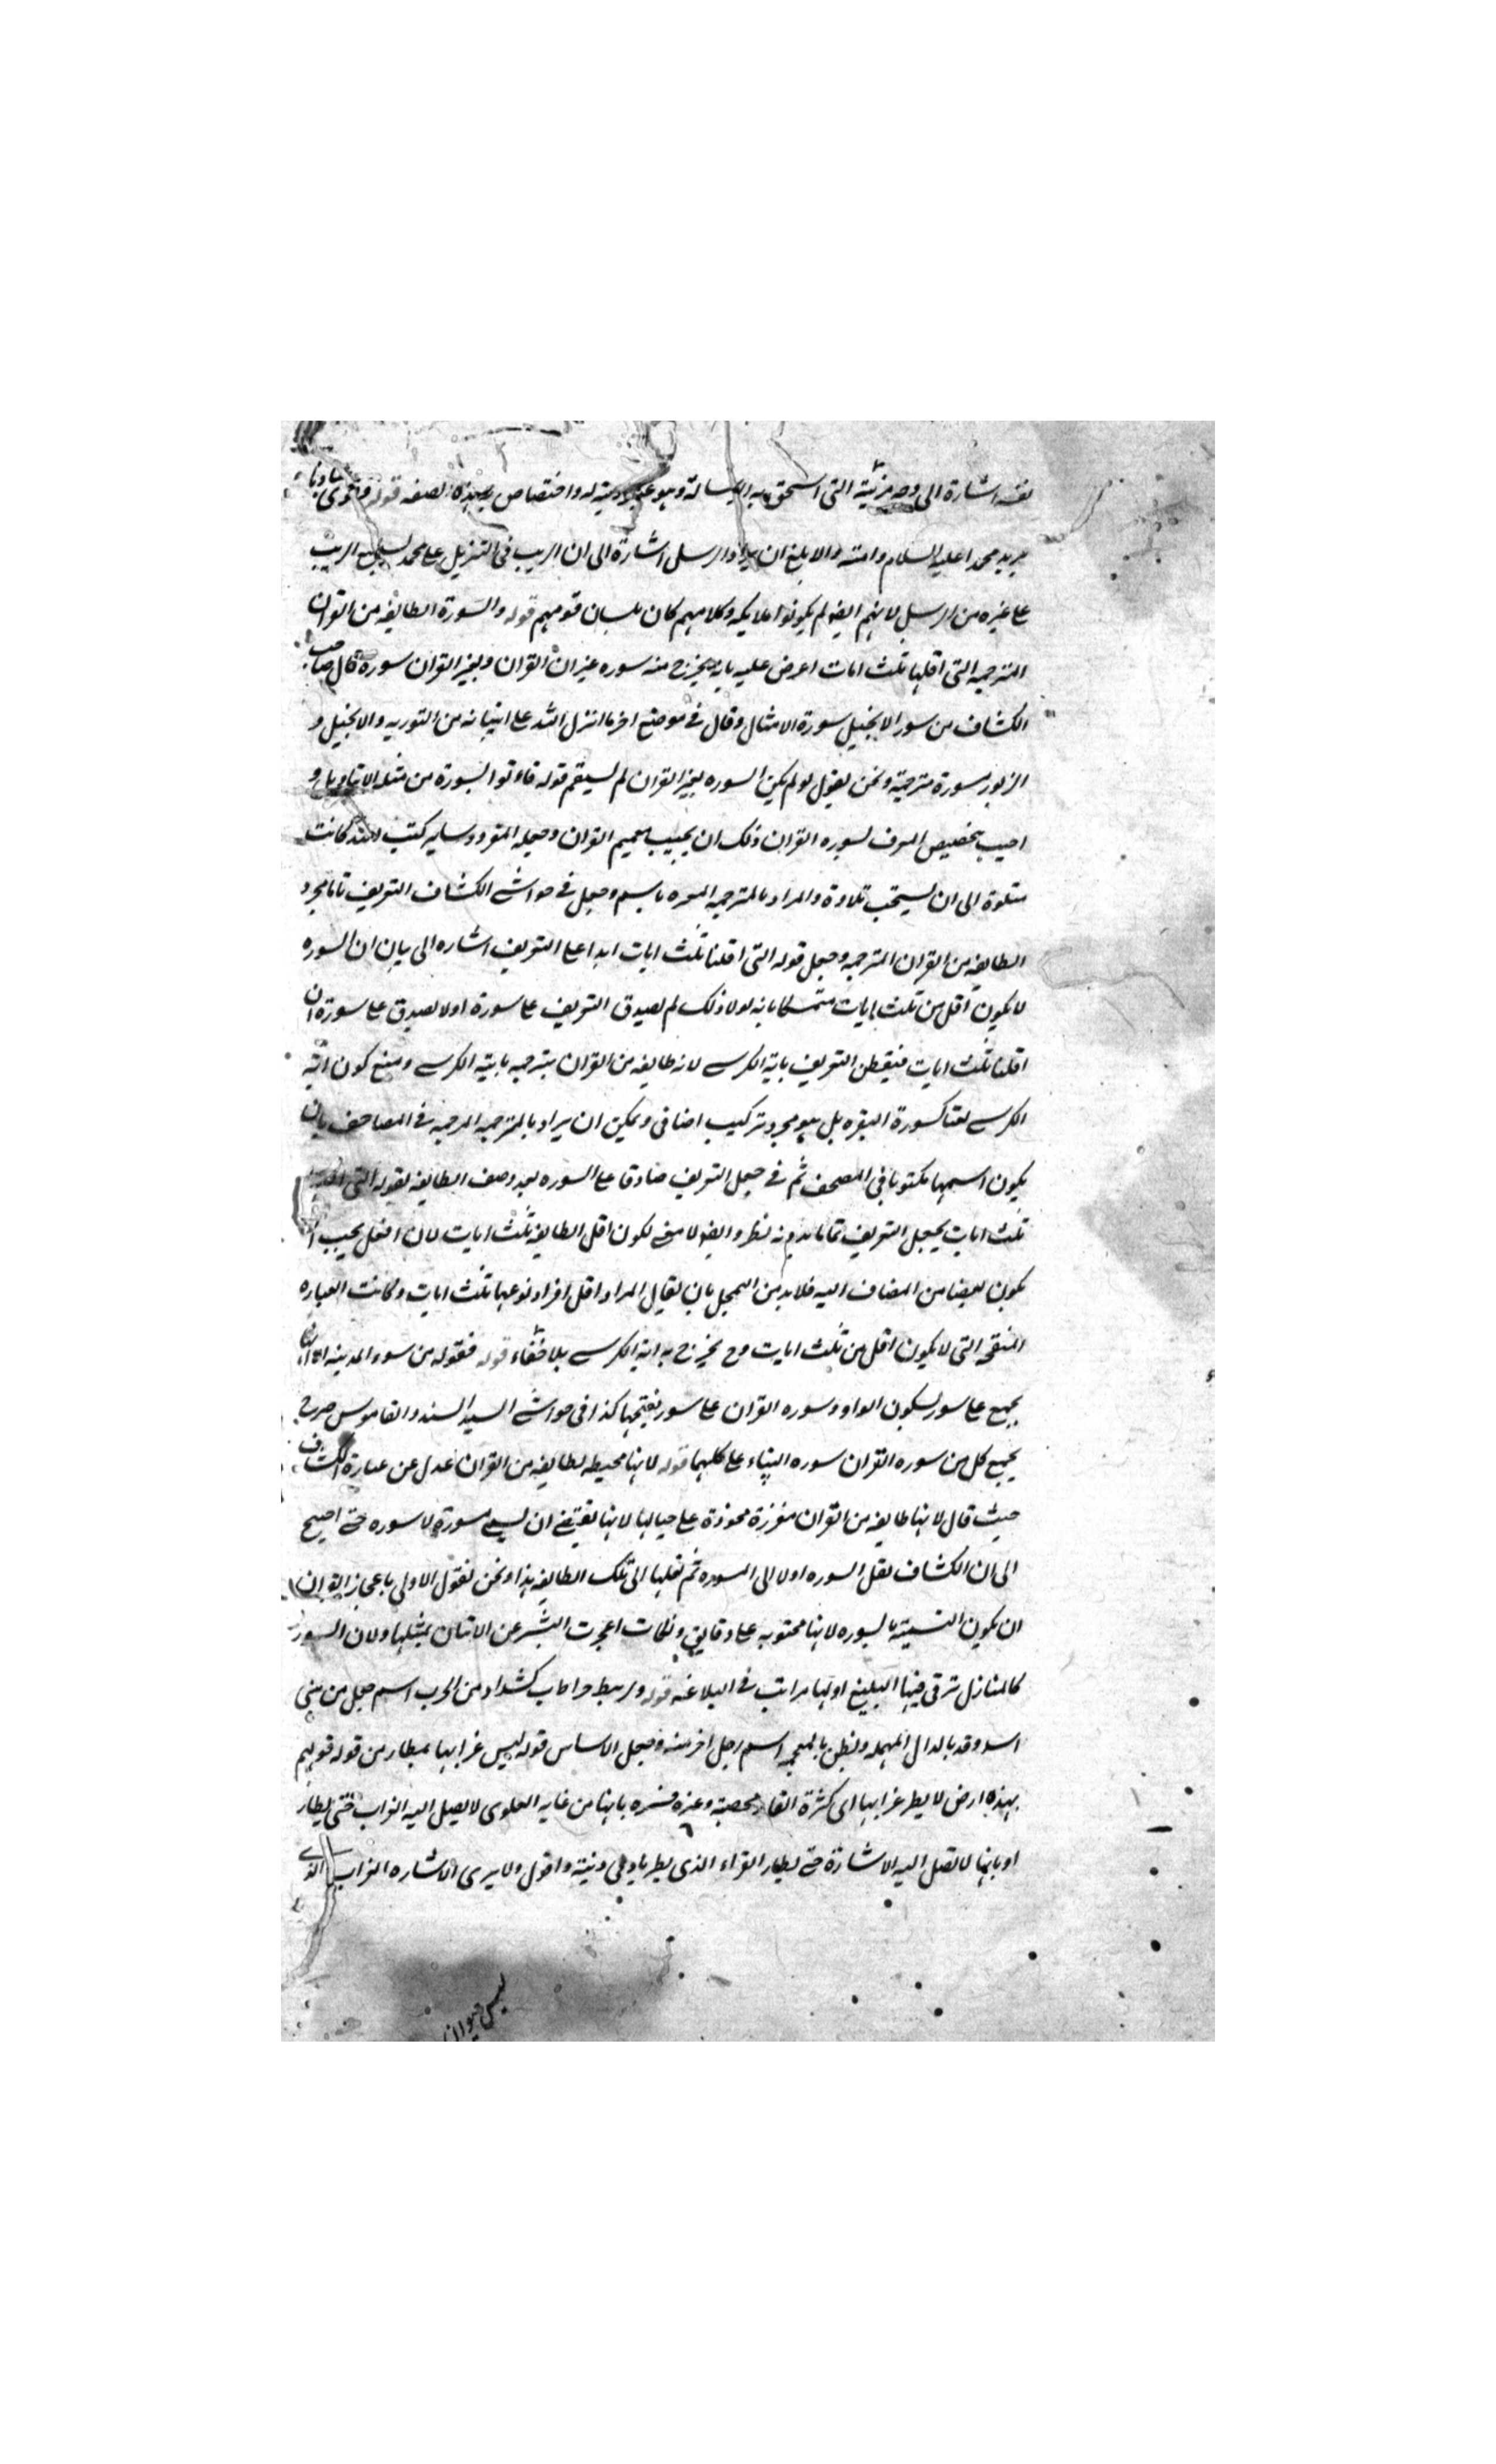 نفسه اشارة الى وجه مزيته التى استحق به الرسالة وهو عبوديته له واختصاصه بهذه الصفة قوله وقرئ عبادنا
يريد محمدا عليه السلام وامته والابلغ ان يراد الرسل اشارة الى ان الريب فى التنزيل على محمد الريب
على غيره من الرسل لانهم ايضا لم يكونوا ملايكه وكلامهم كان بلسان قومهم قوله والسورة الطايفه من القران
المترجمه التى اقلها ثلث ايات اعرض عليه بانه يخرج منه سوره غير القران ولغير القران سوره قال صاحب
الكشاف من سور الانجيل سورة الامثال وقال فى موضع اخر ما انزل الله على انبيائه من التوريه والانجيل و
الزبور سورة مترجمة ونحن نقول لو لم يكن السوره لغير القران لم يستقم قوله فاتوا بسورة من مثله الا بتاويل و
اجيب بتخصيص المعرف بسوره القران ولك ان يجيب بتعميم القران وجعله المقرو وساير كتب الله كانت
متلوة الى ان يستحب تلاوة والمراد بالمترجمه المسماه باسم وجعل فى حواشى الكشاف التعريف تاما بمجرد
الطايفه من القران المترجمه وجعل قوله التى اقلها ثلث ايات على التعريف اشاره الى بيان ان السوره
لا يكون اقل من ثلث ايات متمسكا بانه لولا ذلك لم يصدق التعريف على سورة اولا يصدق على سورة ان
اقلها ثلث ايات فينتقض التعريف باية الكرسى لانه طايفه من القران مترجمه باية الكرسى ومنع كون اية
الكرسى لقبا كسورة البقره بل هو مجرد تركيب اضافى ويمكن ان يراد بالمترجمه المترجمه فى المصاحف بان
يكون اسمها مكتوبا فى المصحف ثم فى جعل التعريف صادقا على السوره بعد وصف الطايفه بقوله التى اقلها
ثلث ايات يجعل التعريف تماما بدونه نظر وايضا لا معنى لكون اقل الطايفه ثلث ايات لان افعل يجب ان
يكون بعضا من المضاف اليه فلا بد من التمحل بان يقال المراد اقل افراد نوعها ثلث ايات وكانت العباره
المنقحة التى لا يكون اقل من ثلث ايات وح يخرج به اية الكرسى بلا خفاء قوله فنقوله من سور المدينه
يجمع على سور بسكون الواو وسوره القران على سور بفتحها كذا فى حواشى السيد السند والقاموس صرح
بجمع كل من سوره القران سوره البناء على كليهما قوله لانها محيطه بطايفه من القران عدل عن عبارة الكشاف
حيث قال لانها طايفه من القران مفرزة محوزة على حيالها لانها تقتضى ان يسمى مسورة لا سوره حتى احتيج
الى ان الكشاف نقل السوره اولا الى المسوره ثم نقلها الى تلك الطايفه هذا ونحن نقول الاولى باعجاز القران
ان يكون التسمية بالسوره لانها محتويه على دقايق ونكات اعجزت البشر عن الاتيان بمثلها ولان السور
كالمنازل ترقى فيها البليغ او لها مراتب فى البلاغه قوله ولرهط حراب كشداد من الحرب اسم رجل من بنى
اسد وقد بالدال المهمله ونظن بالمعجمه اسم رجل اخر منه وجعل الاساس قوله ليس غرابها بمطار من قولهم
بهذه ارض لا يطير غرابها اى كثرة الثمار مخصبة وغيره فسره بانها من غايه العلو لا يصل اليه الغراب حتى يطار
او بانها لا تصل اليه الاشارة حتى يطار الغراب الذى يطير بادنى دنية واقول ولا يرى الاشاره الغراب الذى
ليس حيوان